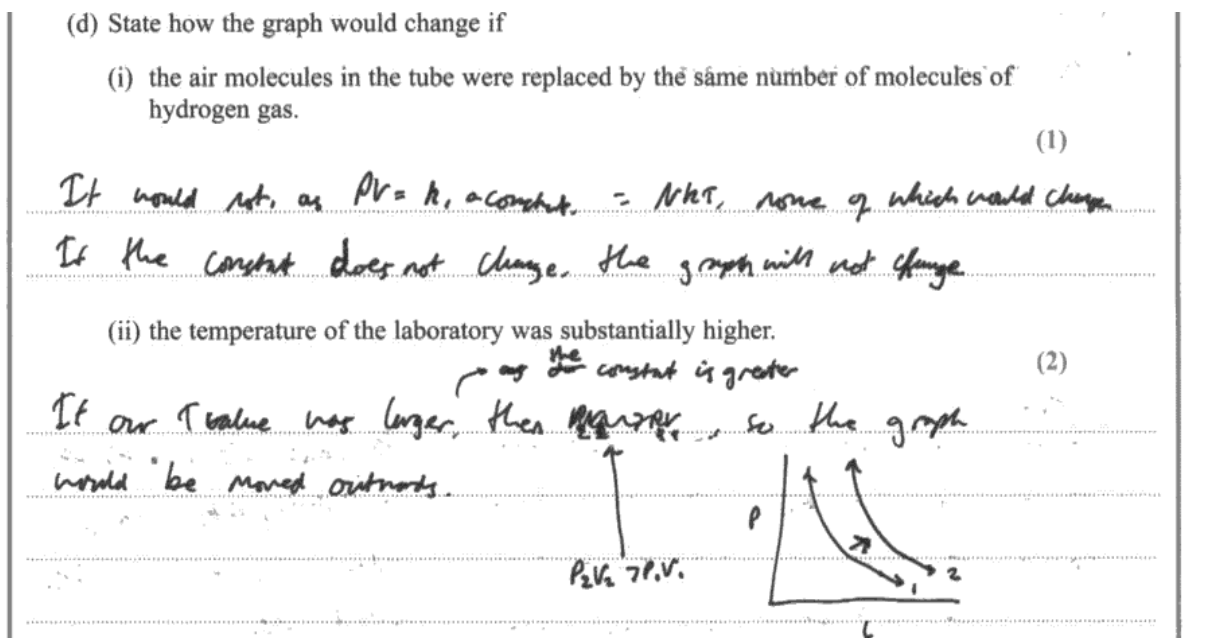 (d) State how the graph would change if
(i) the air molecules in the tube were replaced by the same number of molecules of
hydrogen gas.
(1)
It would not, as PV = k, a constant. = NkT, none of which would change
If the constat does not change, the graph will not change
(ii) the temperature of the laboratory was substantially higher.
(2)
as the constat is greater
If our T value was larger, then , so the graph
would be moved outwards.
P
P₂V₂ > P₁V₁
1
2
L